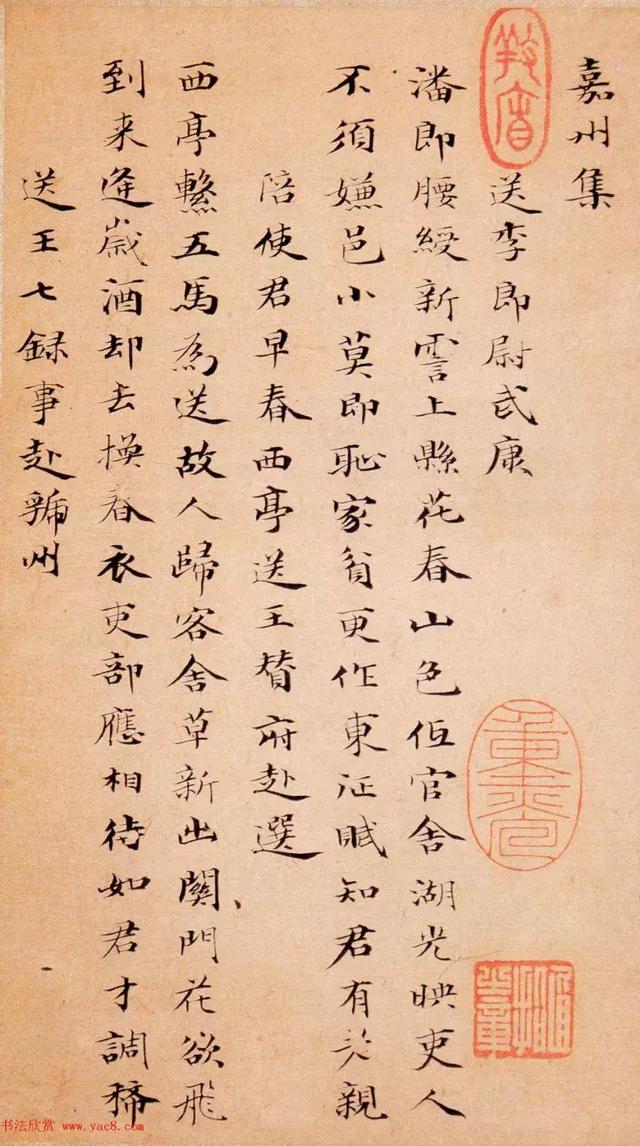 嘉州集
送李郎尉武康
潘郎腰綬新霅上縣花春山色低官舍湖光映吏人
不須嫌邑小莫即恥家貧更作東征賦知君有老親
陪使君早春西亭送王贊府赴選
西亭繫五馬為送故人歸客舍草新出關門花欲飛
到来逢歲酒却去換春衣吏部應相待如君才調稀
送王七録事赴虢州
书法欣赏 www.yac8.com